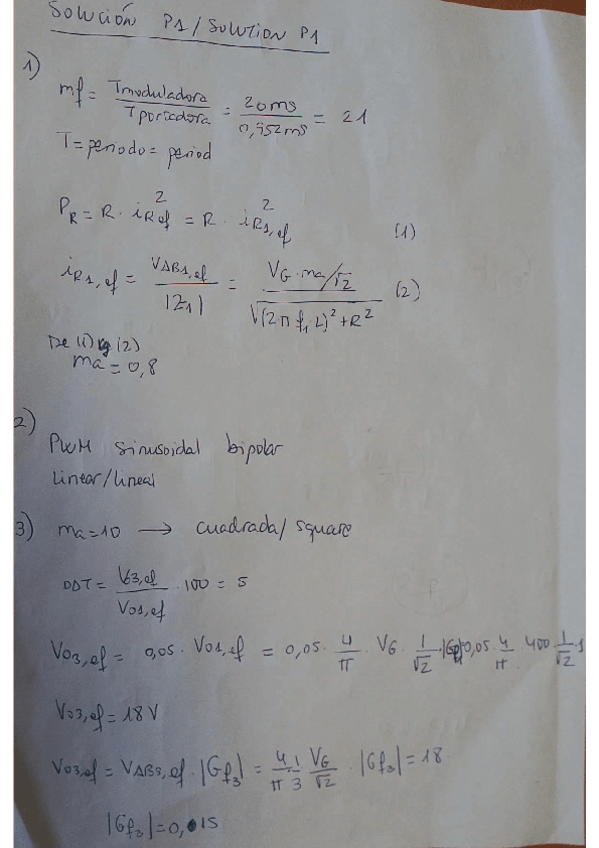 SOLUCIÓN P1/SOLUTION P1
1)
mf = Tmoduladora / Tportadora = 20ms / 0,952ms = 21
T = periodo = period
PR = R · iRef² = R · iR1,ef² (1)
iR1,ef = VAB1,ef / |Z1| = VG · ma/√2 / √((2π f1 L)² + R²) (2)
De (1) y (2)
ma = 0,8
2)
PWM sinusoidal bipolar
Linear/lineal
3) ma=10 → cuadrada/square
DDT = V03,ef / V01,ef · 100 = 5
V03,ef = 0,05 · V01,ef = 0,05 · 4/π · VG · 1/√2 · |Gf1| 0,05 · 4/π · 400 · 1/√2 · 1
V03,ef = 18 V
V03,ef = VAB3,ef · |Gf3| = 4/π · 1/3 VG/√2 · |Gf3| = 18
|Gf3| = 0,15